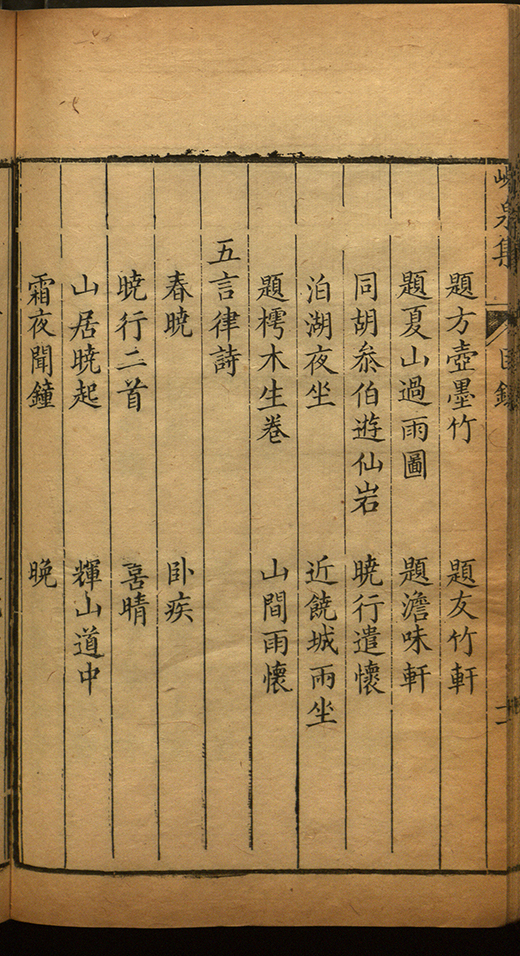 峴泉集 目錄 十一
題方壺墨竹 題友竹軒
題夏山過雨圖 題澹味軒
同胡叅伯遊仙岩 曉行遣懷
泊湖夜坐 近饒城雨坐
題樗木生卷 山間雨懷
五言律詩
春曉 卧疾
曉行二首 喜晴
山居曉起 輝山道中
霜夜聞鐘 晚